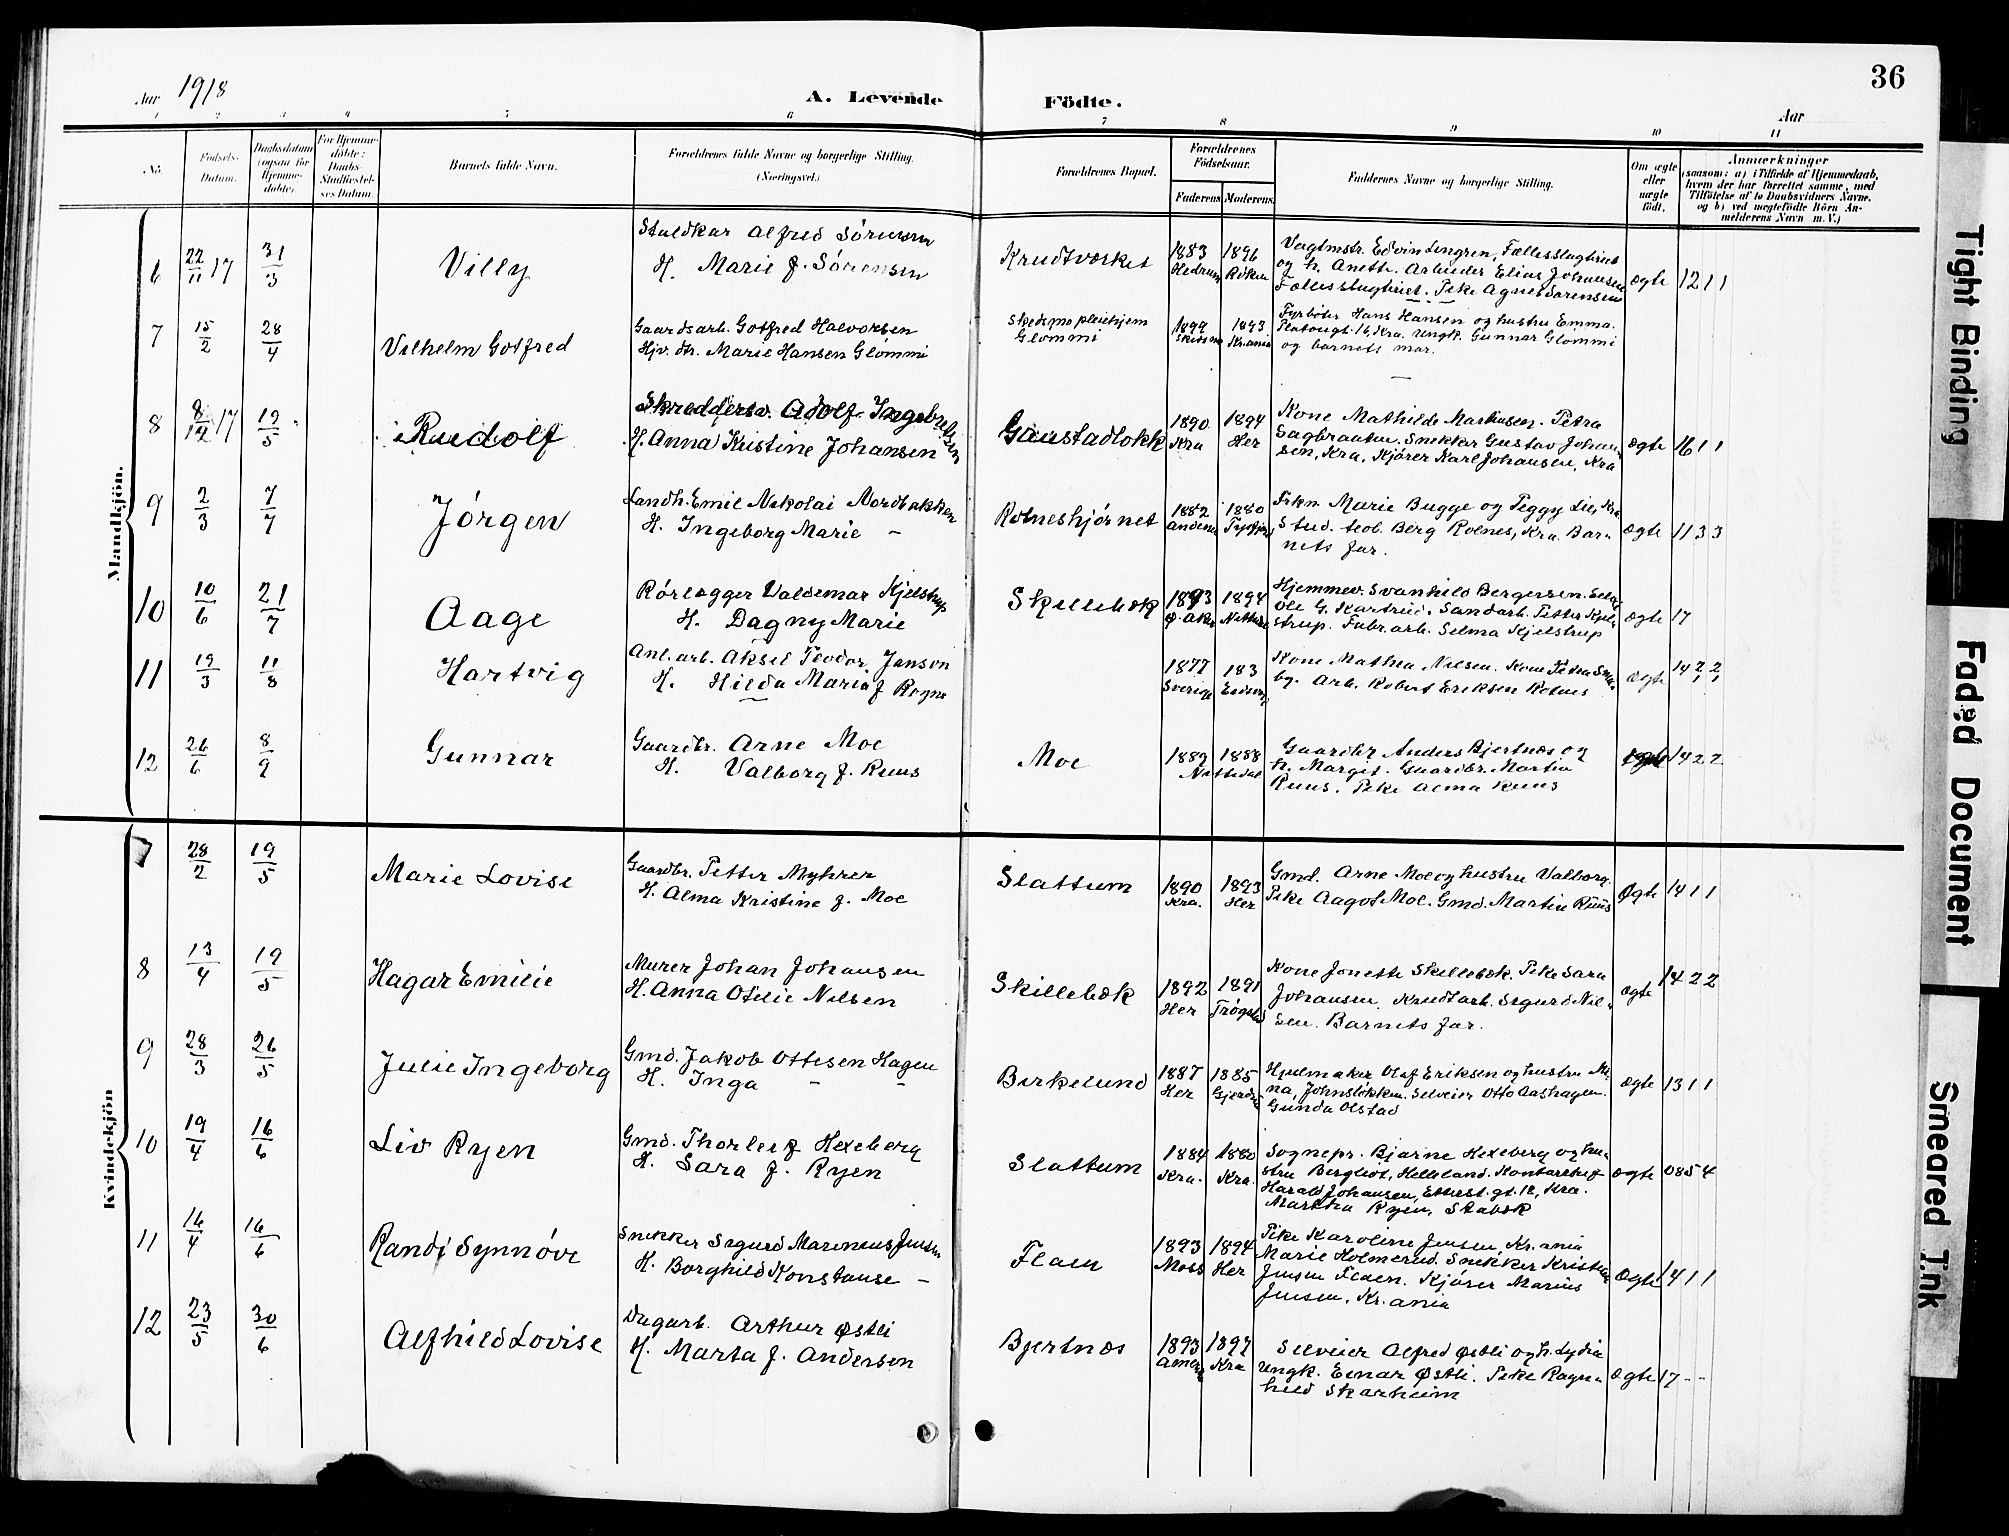 36
Aar 1918
A. Levende Födte.
Aar
1 2 3 4 5 6 7 8 9 10 11
No.
Födsels-Datum.
Daabsdatum (ogsaa for Hjemmedöbte).
For Hjemmedöbte: Daabs-Stadfæstelses Datum
Barnets fulde Navn.
Forældrenes fulde Navne og borgerlige Stilling. (Næringsvei.)
Forældrenes Bopæl.
Forældrenes Födselsaar.
Faderens Moderens
Faddernes Navne og borgerlige Stilling.
Om ægte eller uægte födt.
Anmærkninger
(saasom: a) i Tilfælde af Hjemmedaab, hvem der har forrettet samme, med Tilföielse af to Daabsvidners Navne, og b) ved uægtefödte Börn Anmelderens Navn m. V.)
Mandkjön.
6 22/11 17 31/3 Villy
Staldkar Alfred Sörensen
H. Marie f. Sörensen
Krudtværket
1883 Hedrum 1896 Röken
Vagtmstr. Edvin Lengren, Fællesslagteriet
og h. Anette. Arbeider Elias Johansen
Fællesslagteriet. Pike Agnes Sörensen
ægte 12 1 1
7 15/2 28/4 Vilhelm Gotfred
Gaardsarb. Gotfred Halvorsen
Hjv. dtr. Marie Hansen Glommi
Skedsmo pleiehjem
Glommi
1893 Kr.ania
Fyrböter Hans Hansen og hustru Emma.
Platougt. 16, Kra. Ungk. Gunnar Glommi
og barnets mor.
8 8/12 17 19/5 Rudolf
Skreddersv. Adolf Ingebretsen
H. Anna Kristine Johansen
Gaustadlökk
1890 Kra 1894 Her
Kone Mathilde Markusen. Petra
Sagbraaten. Snekker Gustav Johan-
sen, Kra. Kjörer Karl Johansen, Kra
ægte 16 1 1
9 2/3 7/7 Jörgen
Landh. Emil Nikolai Nordbakken
H. Ingeborg Marie –
Rotneshjörnet
1882 1880
Frkn. Marie Bugge og Peggy Lie, Kra
Stud. teol. Berg Rotnes, Kra. Bar-
nets far.
ægte 11 3 3
10 10/6 21/7 Aage
Rörlægger Valdemar Kjelstrup
H. Dagny Marie
Skillebæk
1893 Ø. Aker 1894
Hjemmev. Svanhild Bergersen.
Ole G. Sandarb. Petter Kjel-
strup. Fabr.arb. Selma Kjelstrup
ægte 17
11 19/3 11/8 Hartvig
Anl. arb. Aksel Teodor Janson
H. Hilda Maria f Rogne
1877 Sverige 183
Kone Mathea Nilsen. Kone Petra
by. Arb. Robert Eriksen Rotnes
ægte 14 2, 2,
12 26/6 8/9 Gunnar
Gaardbr. Arne Moe
H. Valborg f. Ruus
Moe
1889 1888 Nittedal
Gaardbr Anders Bjertnæs og
h. Margit. Gaardbr. Martin
Ruus. Pike Alma Ruus
ægte 14 2 2
Kvindekjön
7 28/2 19/5 Marie Lovise
Gaardbr. Petter Myhrer
H. Alma Kristine f. Moe
Slattum
1890 Kra. 1893 Her
Gmd. Arne Moe og hustru Valborg.
Pike Aagot Moe. Gmd. Martin Ruus
Ægte 14 1 1
8 13/4 19/5 Hagar Emilie
Murer Johan Johansen
H. Anna Otilie Nilsen
Skillebæk
1892 Her 1891 Trögstad
Kone Jonette Skillebæk. Pike Sara
Johansen. Krudtarb. Sigurd Nil-
sen. Barnets far.
ægte 14 2 2
9 28/3 26/5 Julie Ingeborg
Gmd. Jakob Ottesen Hagen
H. Inga – –
Birkelund
1887 Her 1885 Gjerdr
Hjulmaker Olaf Eriksen og hustru Mi-
na, Johnslökken. Selveier Otto Aashagen.
Gunda Olstad
ægte 13 1 1
10 19/4 16/6 Liv Ryen
Gmd. Thorleif Hexeberg
H. Sara f. Ryen
Slattum
1884 Kra. 1880 Kra.
Sognepr. Bjarne Hexeberg og hu-
stru Bergliot, Helleland. Kontorchef
Harald Johansen, gt. 18, Kra.
Martha Ryen, Stabæk
ægte 0854
11 16/4 16/6 Randi Synnöve
Snekker Sigurd Marenius Jensen
H. Borghild Konstanse –
Flaen
1893 Moss 1894 Her
Pike Karoline Jensen, Kr.ania
Marie Holmerud. Snekker Kristian
Jensen Flaen. Kjörer Marius
Jensen, Kr.ania
Ægte 14 1 1
12 23/5 30/6 Alfhild Lovise
Dagarb. Arthur Østli
H. Marta f. Andersen
Bjertnæs
1893 1897 Kra
Selveier Alfred Østli og h. Lydia
Ungk. Einar Østli. Pike Ragn-
hild Skarheim
ægte 17 – –
Tight Binding
Faded Document
Smeared Ink